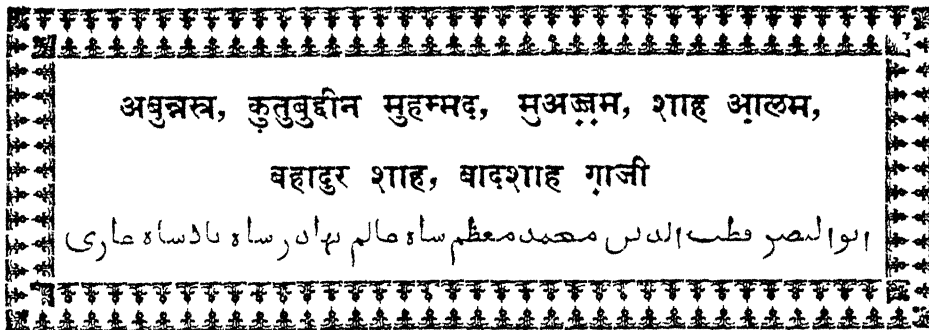 अबुन्नस्र, क़ुतुबुद्दीन मुहम्मद, मुअज़्ज़म, शाह आ़लम,
बहादुर शाह, बादशाह ग़ाजी
ابوالنصر قطب الدین محمد معظم شاه عالم بهادر شاه بادشاه غازی